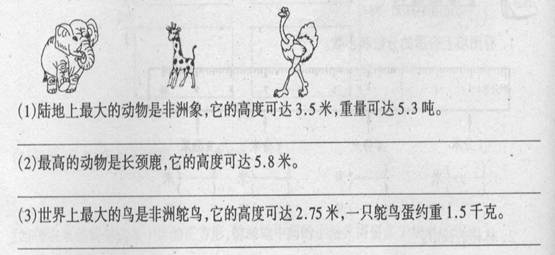 (1)陆地上最大的动物是非洲象,它的高度可达3.5米,重量可达5.3吨。
(2)最高的动物是长颈鹿,它的高度可达5.8米。
(3)世界上最大的鸟是非洲鸵鸟,它的高度可达2.75米,一只鸵鸟蛋约重1.5千克。